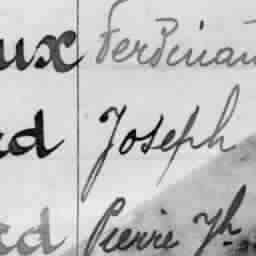 ux Ferdinan
ed Joseph
ed Pierre Jh